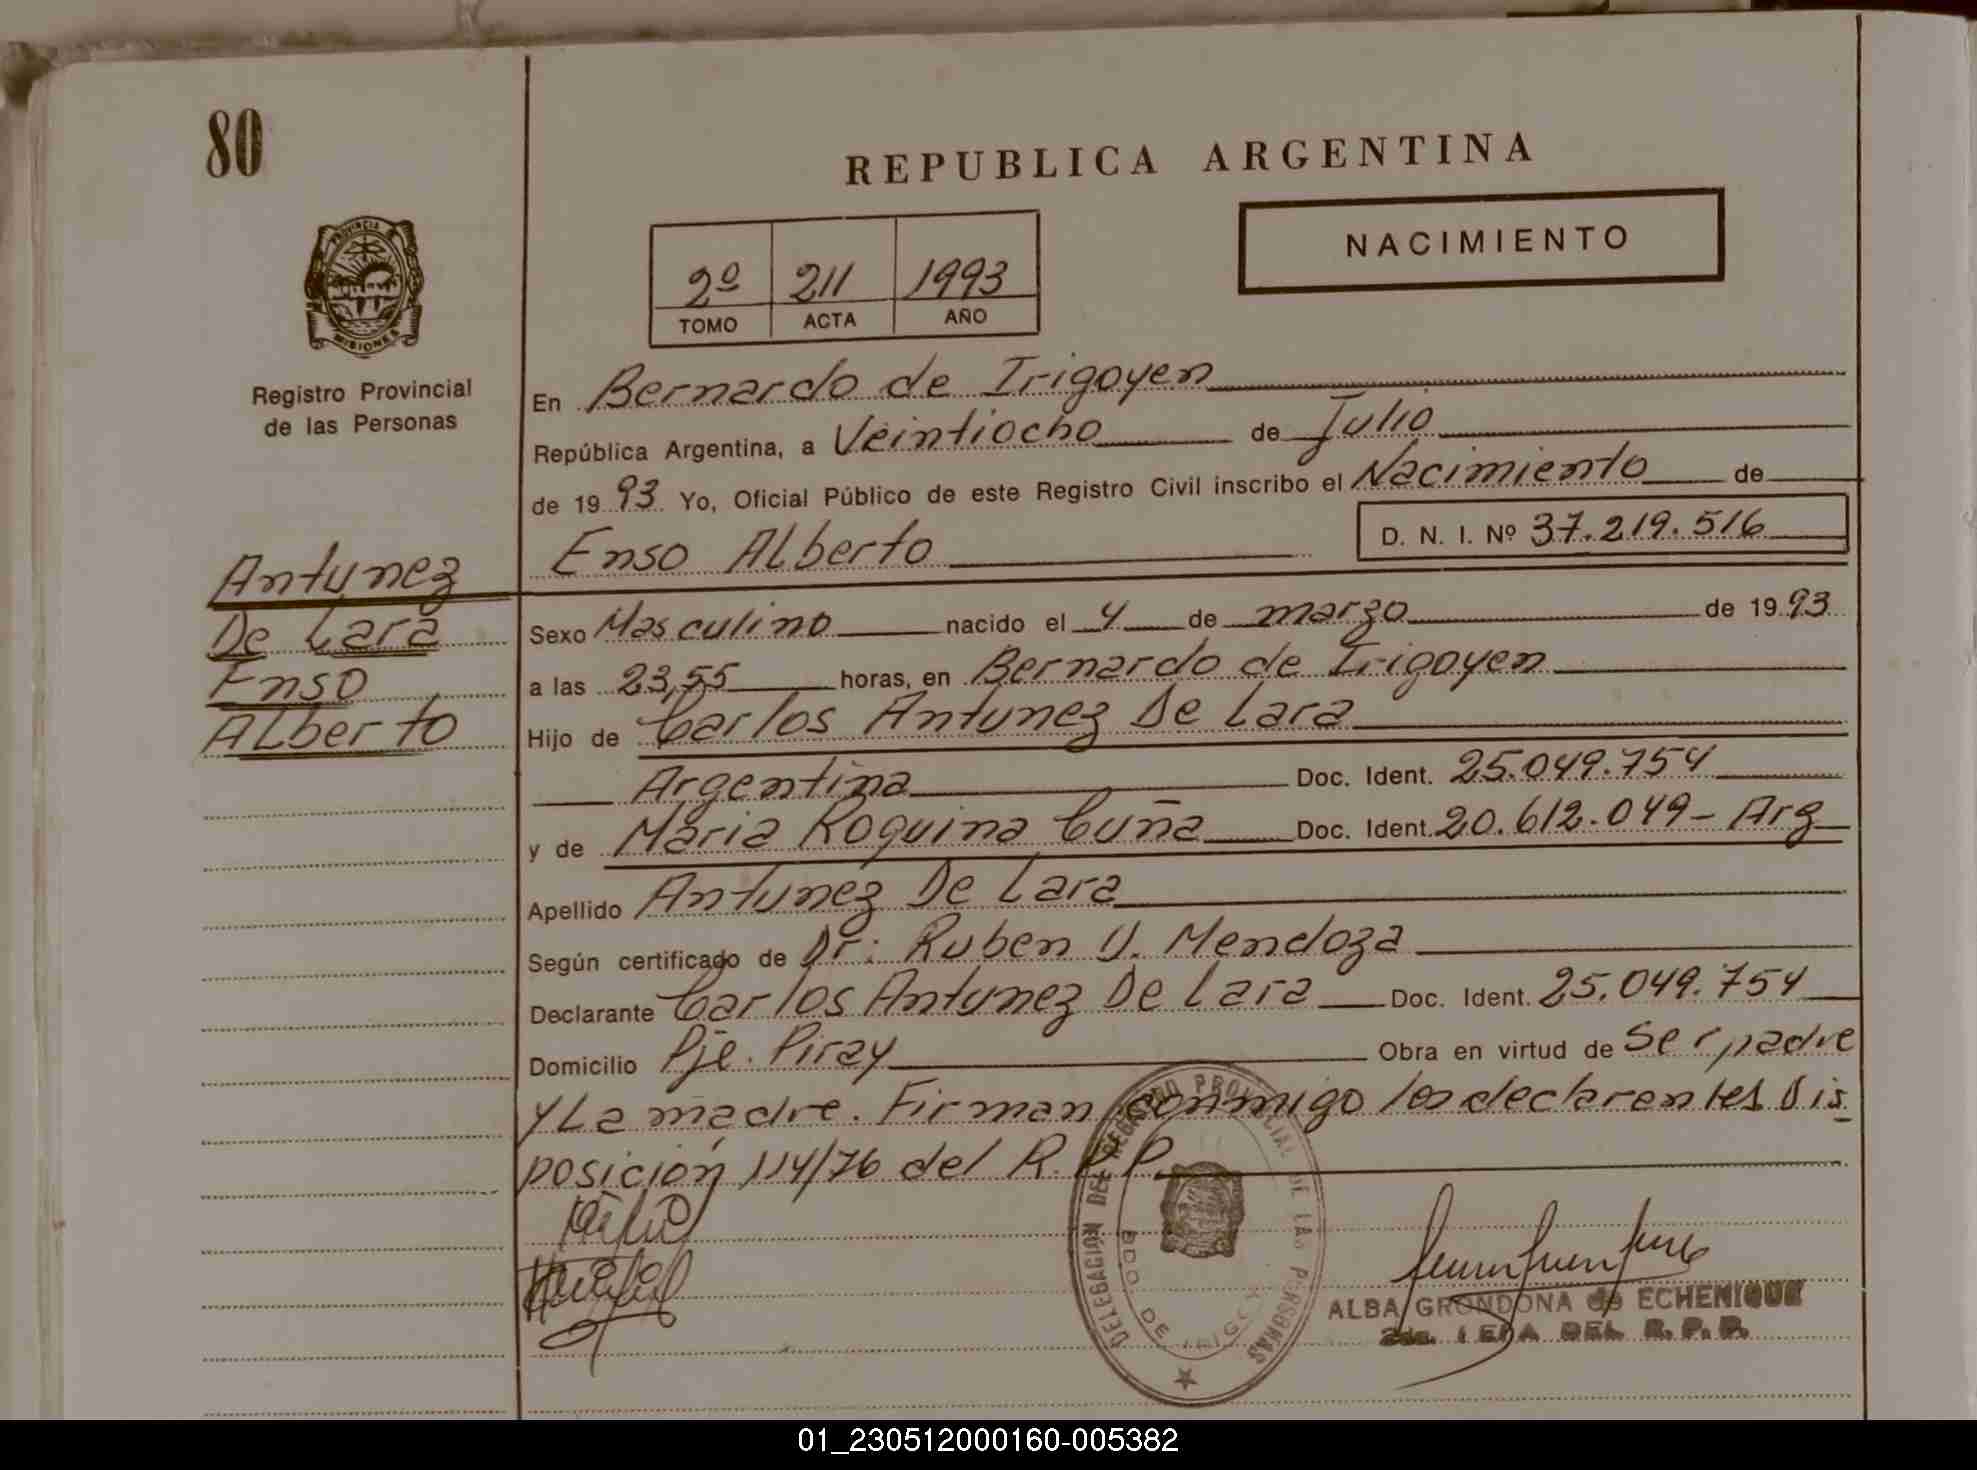 80
REPUBLICA ARGENTINA
NACIMIENTO
2º 211 1993
TOMO ACTA AÑO
PROVINCIA DE
MISIONES
Registro Provincial
de las Personas
En Bernardo de Irigoyen
República Argentina, a Veintiocho de Julio
de 1993 Yo, Oficial Público de este Registro Civil inscribo el Nacimiento de
Enso Alberto D. N. I. Nº 37.219.516
Antunez
De Lara
Enso
Alberto
Sexo Masculino nacido el 4 de marzo de 1993
a las 23,55 horas, en Bernardo de Irigoyen
Hijo de Carlos Antunez De Lara
Argentina Doc. Ident. 25.049.754
y de Maria Roquina Cuña Doc. Ident. 20.612.049 - Arg
Apellido Antunez De Lara
Según certificado de Dr: Ruben U. Mendoza
Declarante Carlos Antunez De Lara Doc. Ident. 25.049.754
Domicilio Pje. Piray Obra en virtud de Ser padre
y La madre. Firman conmigo los declarentes Dis-
posición 114/76 del R.P.P.
DELEGACION DEL REGISTRO PROVINCIAL DE LAS PERSONAS
BDO. DE IRIGOYEN
ALBA GRONDONA de ECHENIQUE
2da. JEFA DEL R. P. P.
01_230512000160-005382